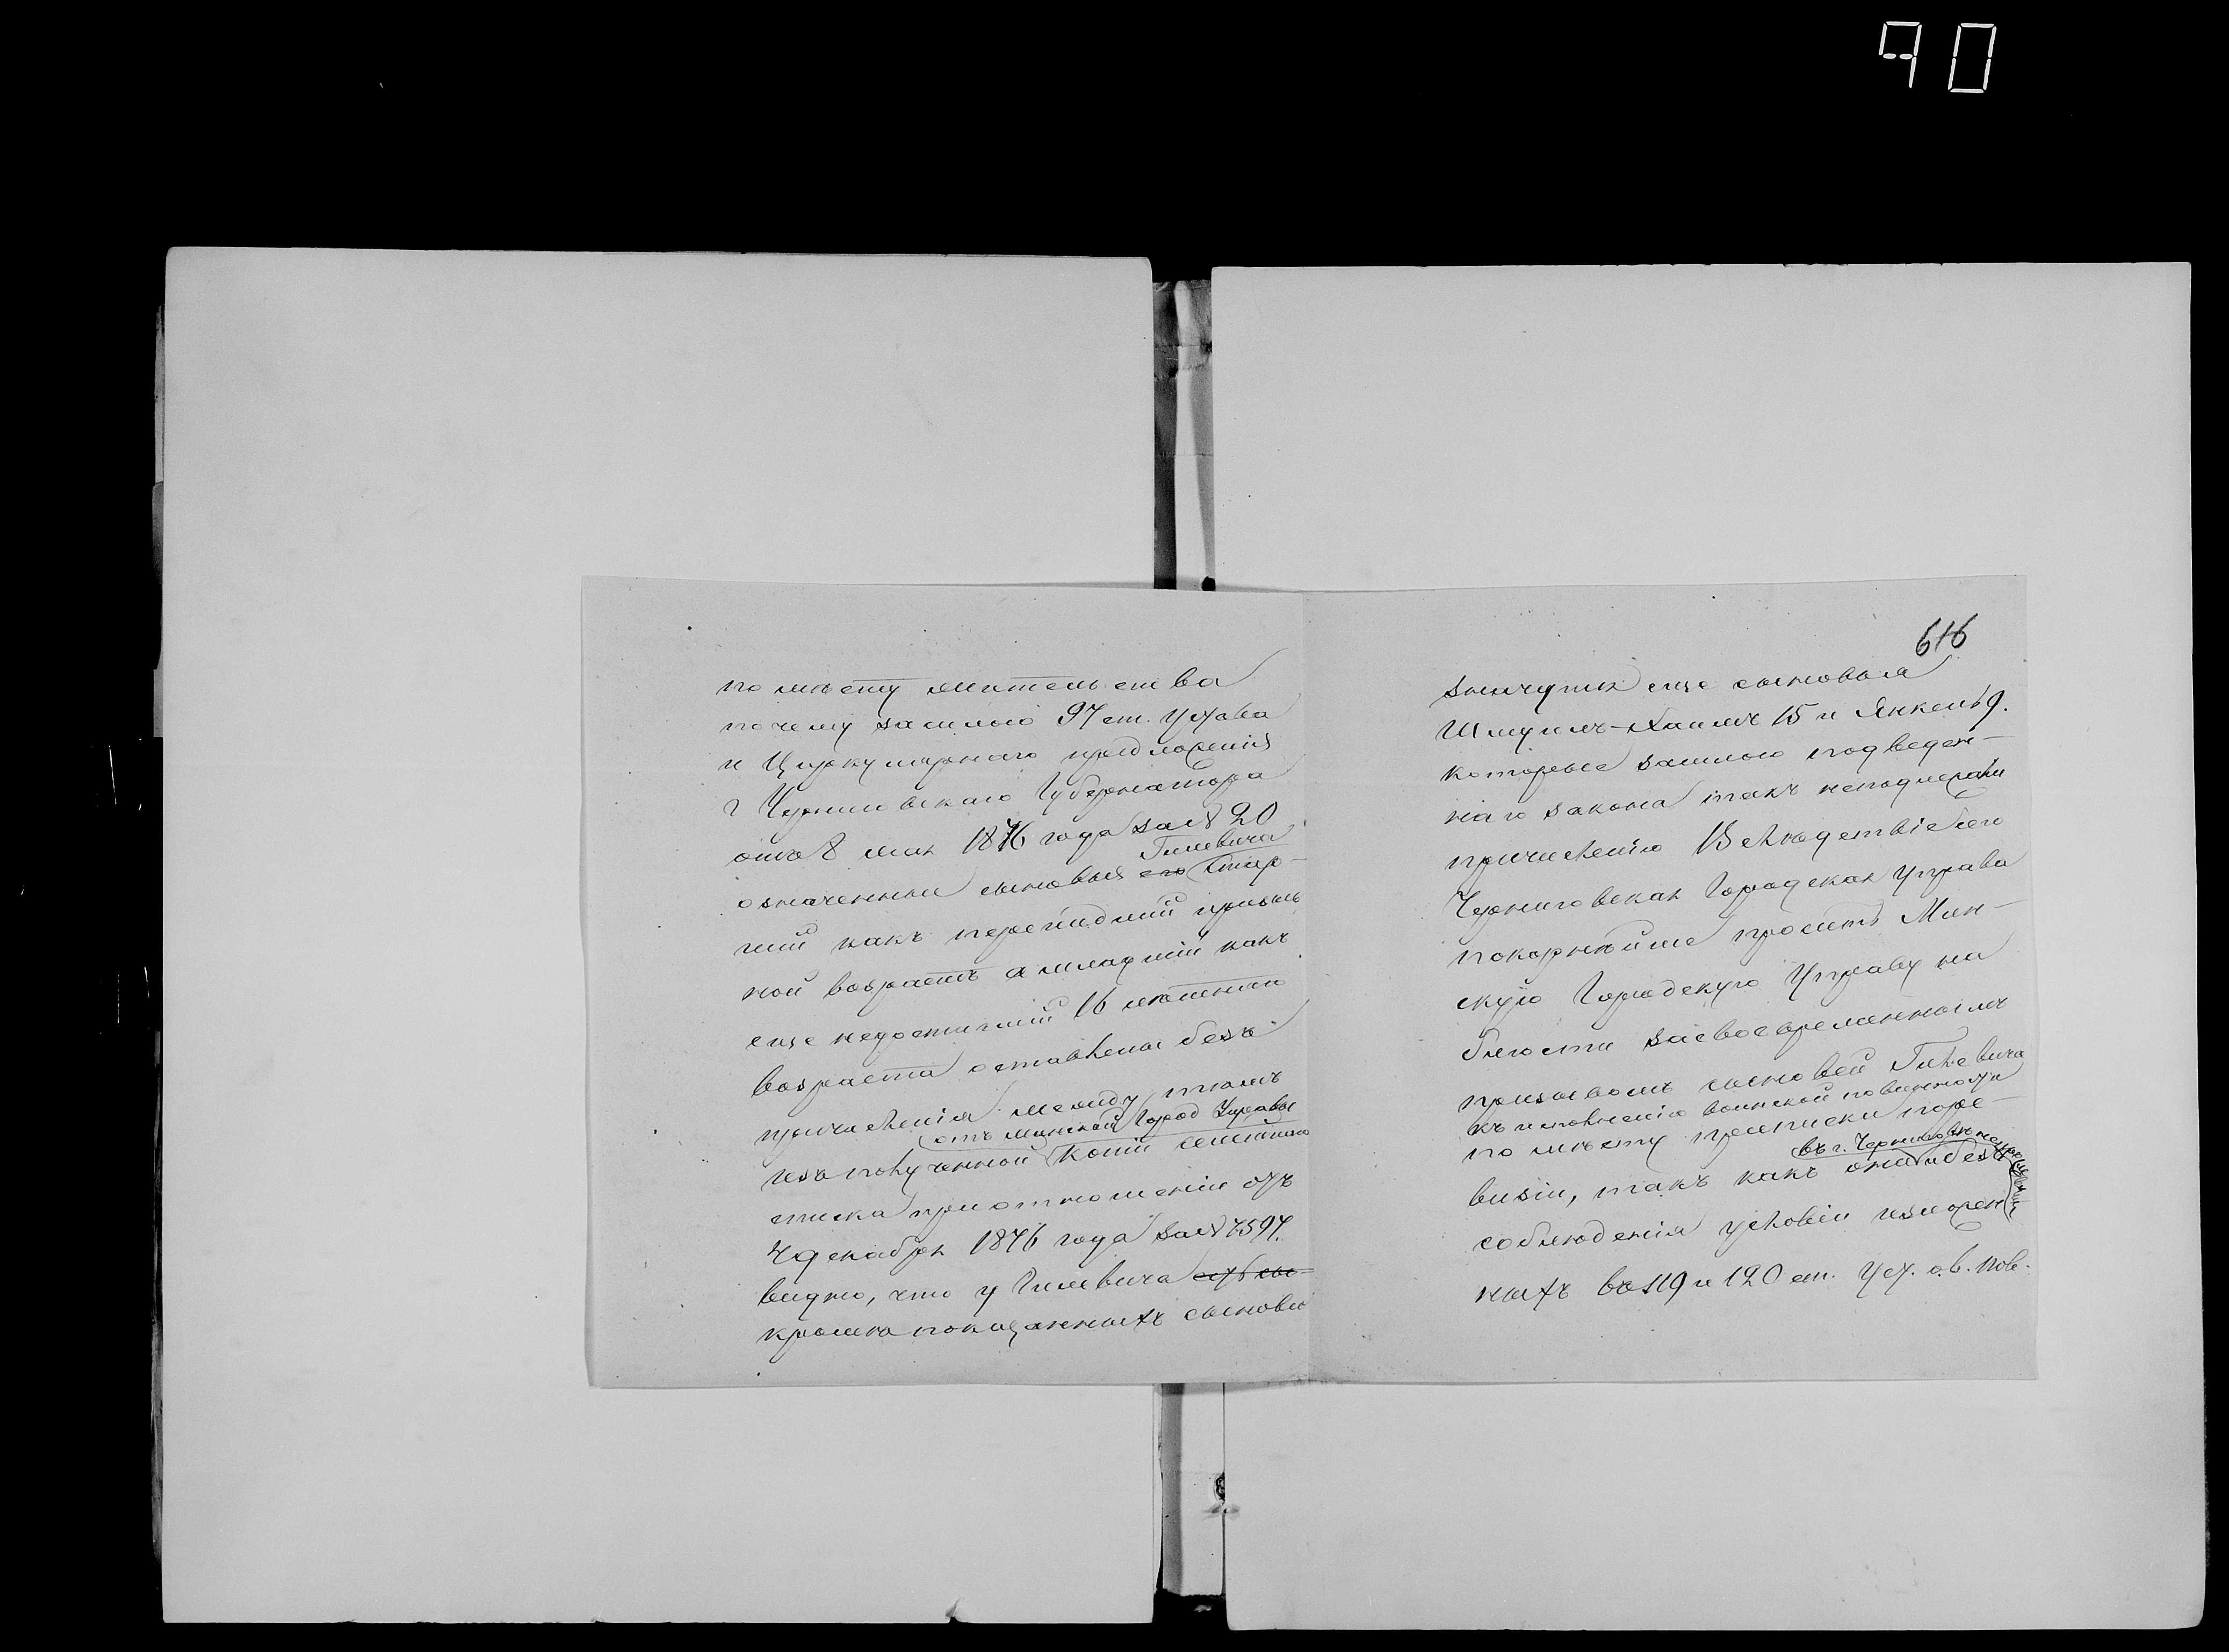 90
по мѣсту жительства
почему засилою 97 ст. Устава
и Циркулярнаго предложенія
г Черниговскаго Губернатора
отъ 8 мая 1876 года за № 20
означенныи сыновья его Гилевича стар-
шій какъ перешедшій призыв
ной возрастъ а младшій какъ
еще недостигшій 16 лѣтняго
возраста оставлены безъ
причисленія. Между тѣмъ
изъ полученной отъ Минской Город Управы копіи семейнаго
списка при отношеніи отъ
4 декабря 1876 года за № 7597.
видно, что у Гилевича
кромѣ показанныхъ сыновей
616
значутся еще сыновья
Шмуилъ-Хаимъ 15 и Янкель 9.
которые засилою подведен-
наго закона такъ неподлежали
причисленію Вслѣдствіе сего
Черниговская Городская Управа
покорнѣйше проситъ Мин-
скую Городскую Управу на
блюсти засвоевременнымъ
призывомъ сыновей Гилевича
къ исполненію воинской повинности
по мѣсту приписки по ре-
визіи, такъ какъ они въ г. Черниговѣ безъ
соблюденія условіи изложен
ныхъ въ 119 и 120 ст. Уст. о в. пов.